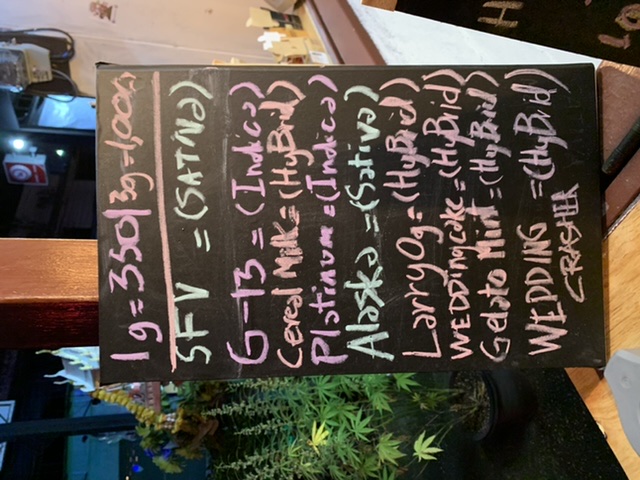 1g=350|3g=1,000
SFV = (SATIVa)
G-13 = (Indica)
Cereal Milk = (HyBrid)
Platinum = (Indica)
Alaska = (Sativa)
Larry Og = (HyBrid)
WEDDingcake = (HyBrid)
Gelato Mint = (HyBrid)
WEDDING = (HyBrid)
CRASHER